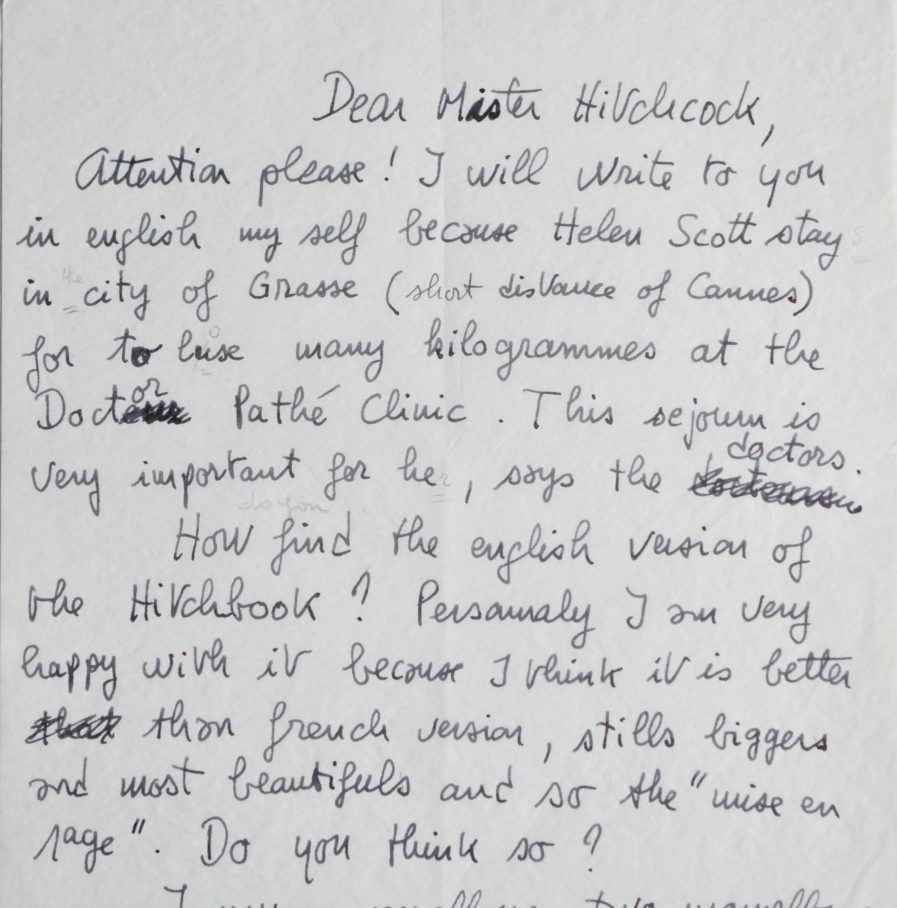 Dear Mister Hitchcock,
Attention please! I will write to you
in english my self because Helen Scott stay
in the city of Grasse (short distance of Cannes)
for to luse many kilogrammes at the
Doctor Pathé Clinic. This sejourn is
very important for he, says the doctors.
do you
How find the english version of
the Hitchbook? Personnaly I am very
happy with it because I think it is better
than french version, stills biggers
and most beautifuls and so the "mise en
page". Do you think so?